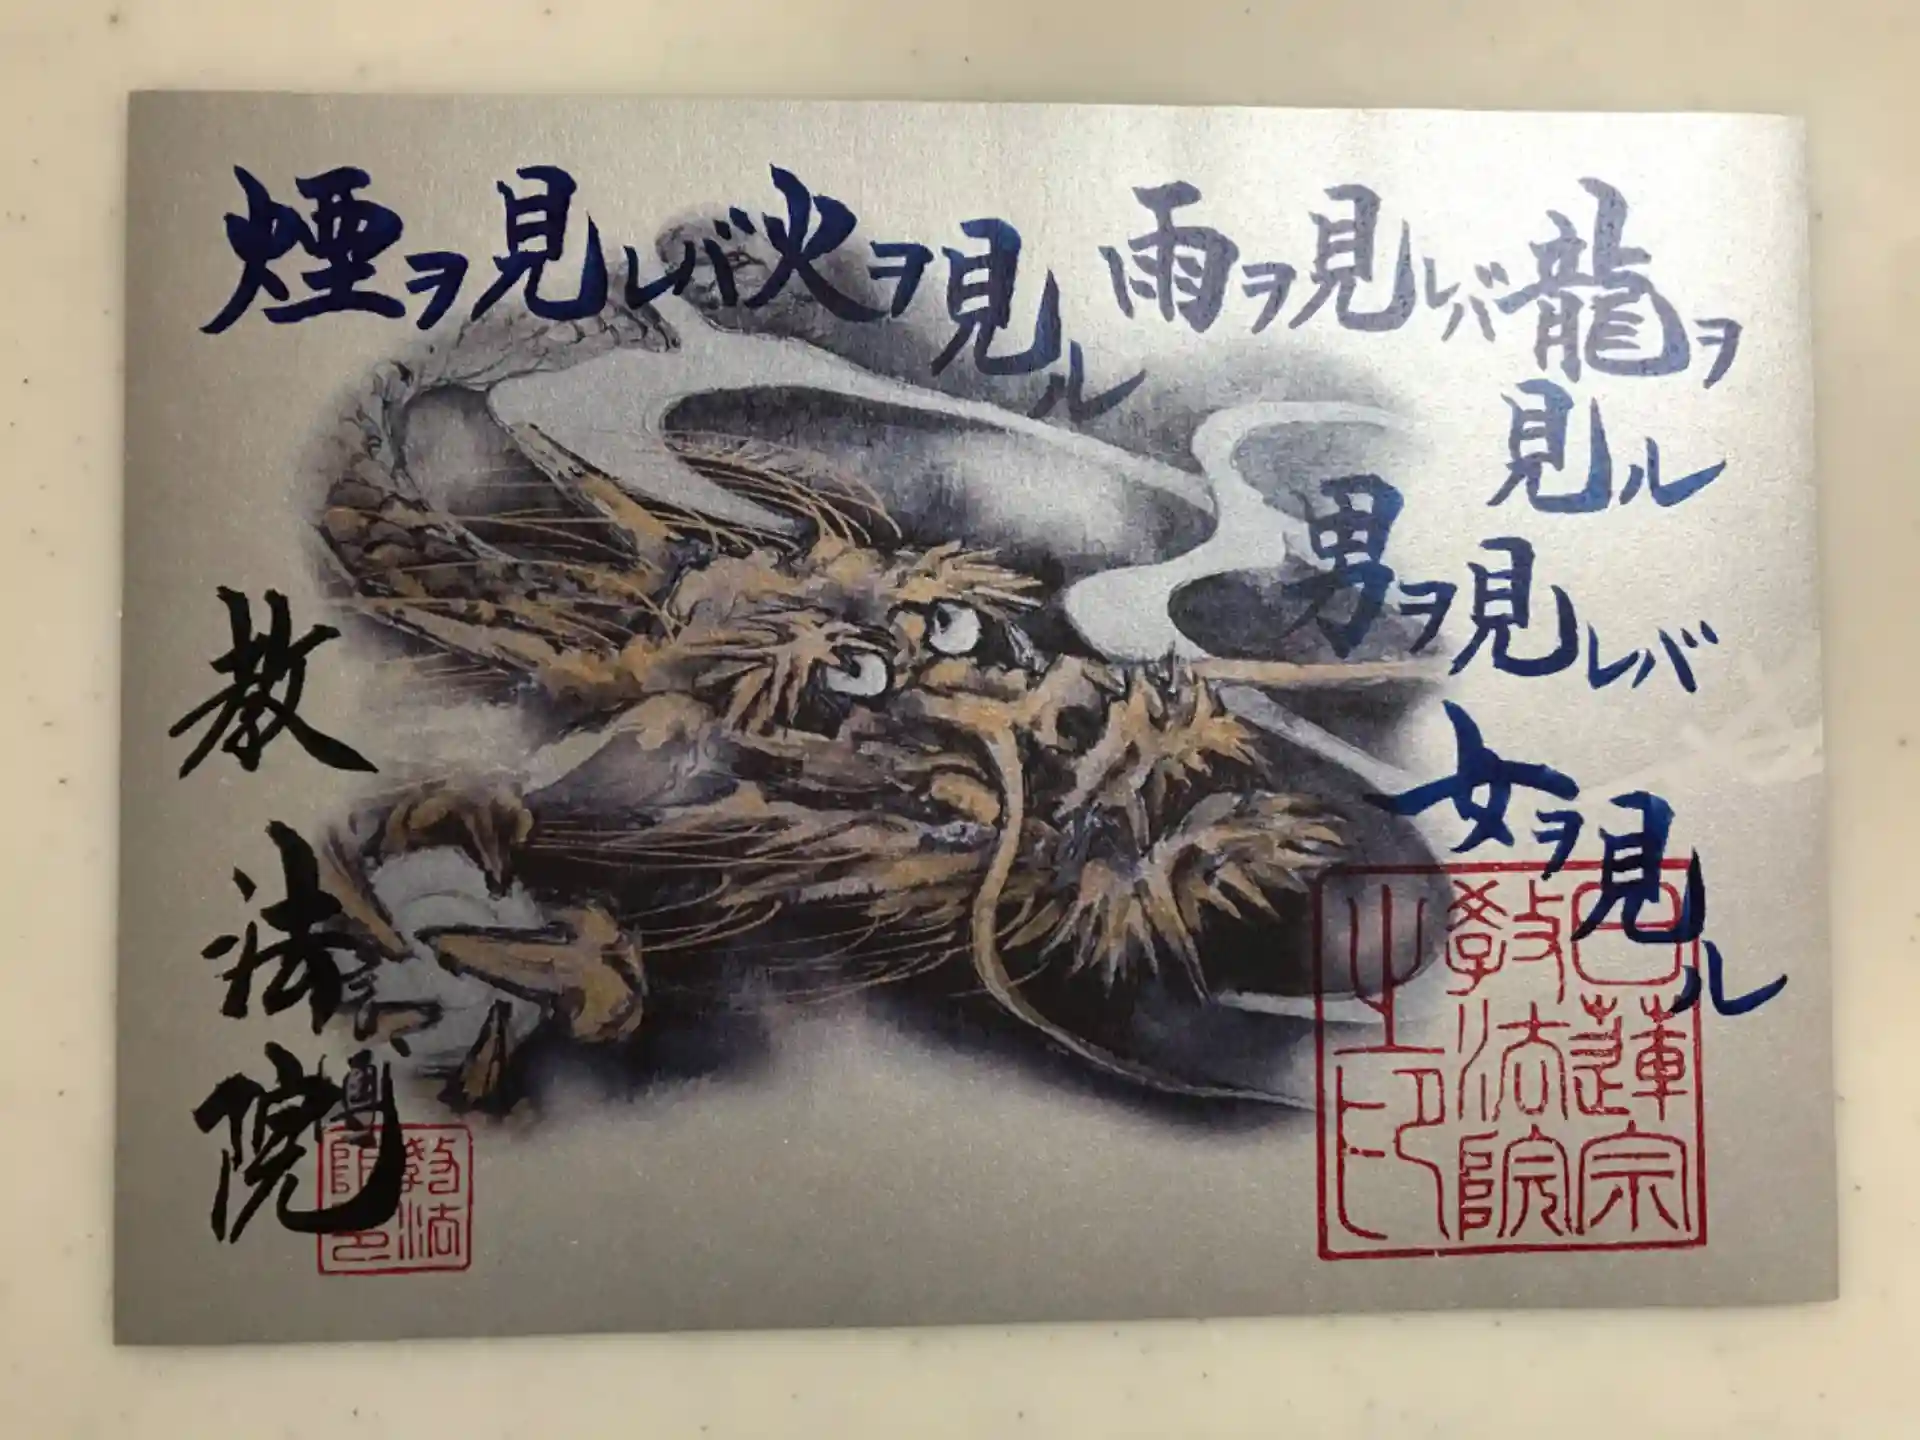 煙ヲ見レバ火ヲ見ル
雨ヲ見レバ龍ヲ
見ル
男ヲ見レバ
女ヲ見ル
教法院
日蓮宗
教法院
之印